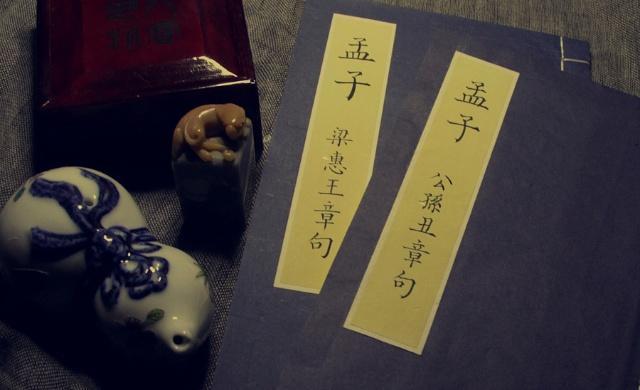 孟子 梁惠王章句
孟子 公孫丑章句